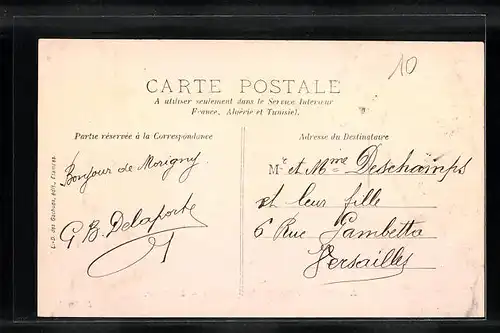 10
CARTE POSTALE
A utiliser seulement dans le Service Intérieur
France, Algérie et Tunisie).
Partie réservée à la Correspondance
Adresse du Destinataire
L.-D. des Gachons, édit., Etampes
Bonjour de Morigny.
G B. Delaporte
Mr et Mme Deschamps
et leur fille
6 Rue Gambetta
Versailles